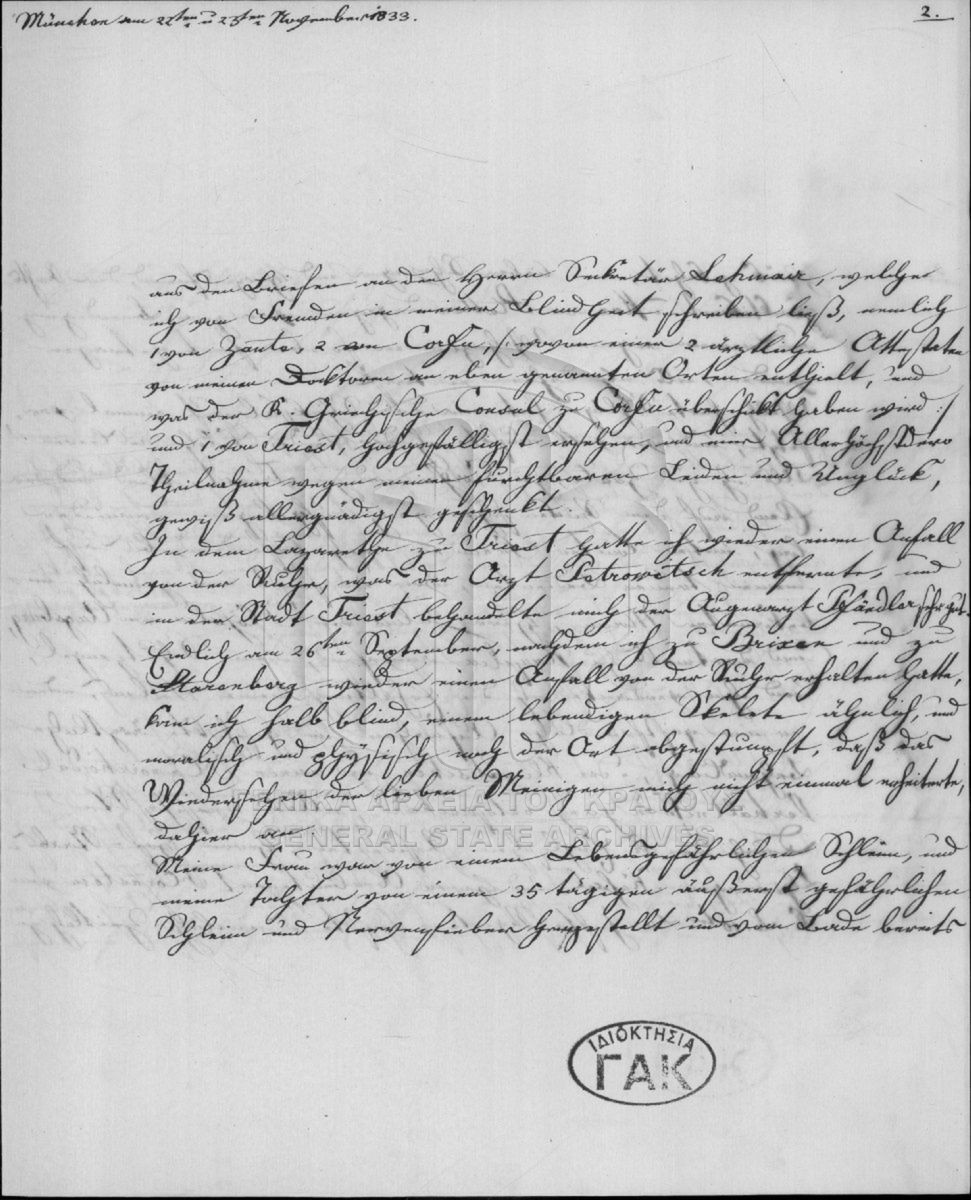 München am 22ten u 23ten November 1833.
2.
aus den Briefen an den Herrn Sekretär Lehmair, welche
ich von Fremden in meiner Blindheit schreiben ließ, nemlich
1 von Zante, 2 von Corfu, /: wovon einer 2 ärztliche Attestaten
von meinen Docktoren an eben genannten Orten enthielt, und
was der K. Griechische Consul zu Corfu überschickt haben wird :/
und 1 von Triest, hochgefälligst ersehen, und mir Allerhöchst Dero
Theilnahme wegen meinen furchtbaren Leiden und Unglück,
gewiß allergnädigst geschenkt.
In dem Lazarethe zu Triest hatte ich wieder einen Anfall
von der Ruhr, was der Arzt Petrowitsch entfernte, und
in der Stadt Triest behandelte mich der Augenarzt sehr gut.
Endlich am 26ten September, nachdem ich zu Brixen und zu
Starenberg wieder einen Anfall von der Ruhr erhalten hatte,
kam ich halb blind, einem lebendigen Skelete ähnlich, und
moralisch und physisch nach der Art abgestumpft, daß das
Wiedersehen der lieben Meinigen mich nicht einmal erheiterte,
dahier an.
Meine Frau war von einem Lebensgefährlichen Schleim, und
meine Tochter von einem 35 tägigen äußerst gefährlichen
Schleim und Nervenfieber hergestellt und vom Bade bereits
ΓΕΝΙΚΑ ΑΡΧΕΙΑ ΤΟΥ ΚΡΑΤΟΥΣ
GENERAL STATE ARCHIVES
ΙΔΙΟΚΤΗΣΙΑ
ΓΑΚ